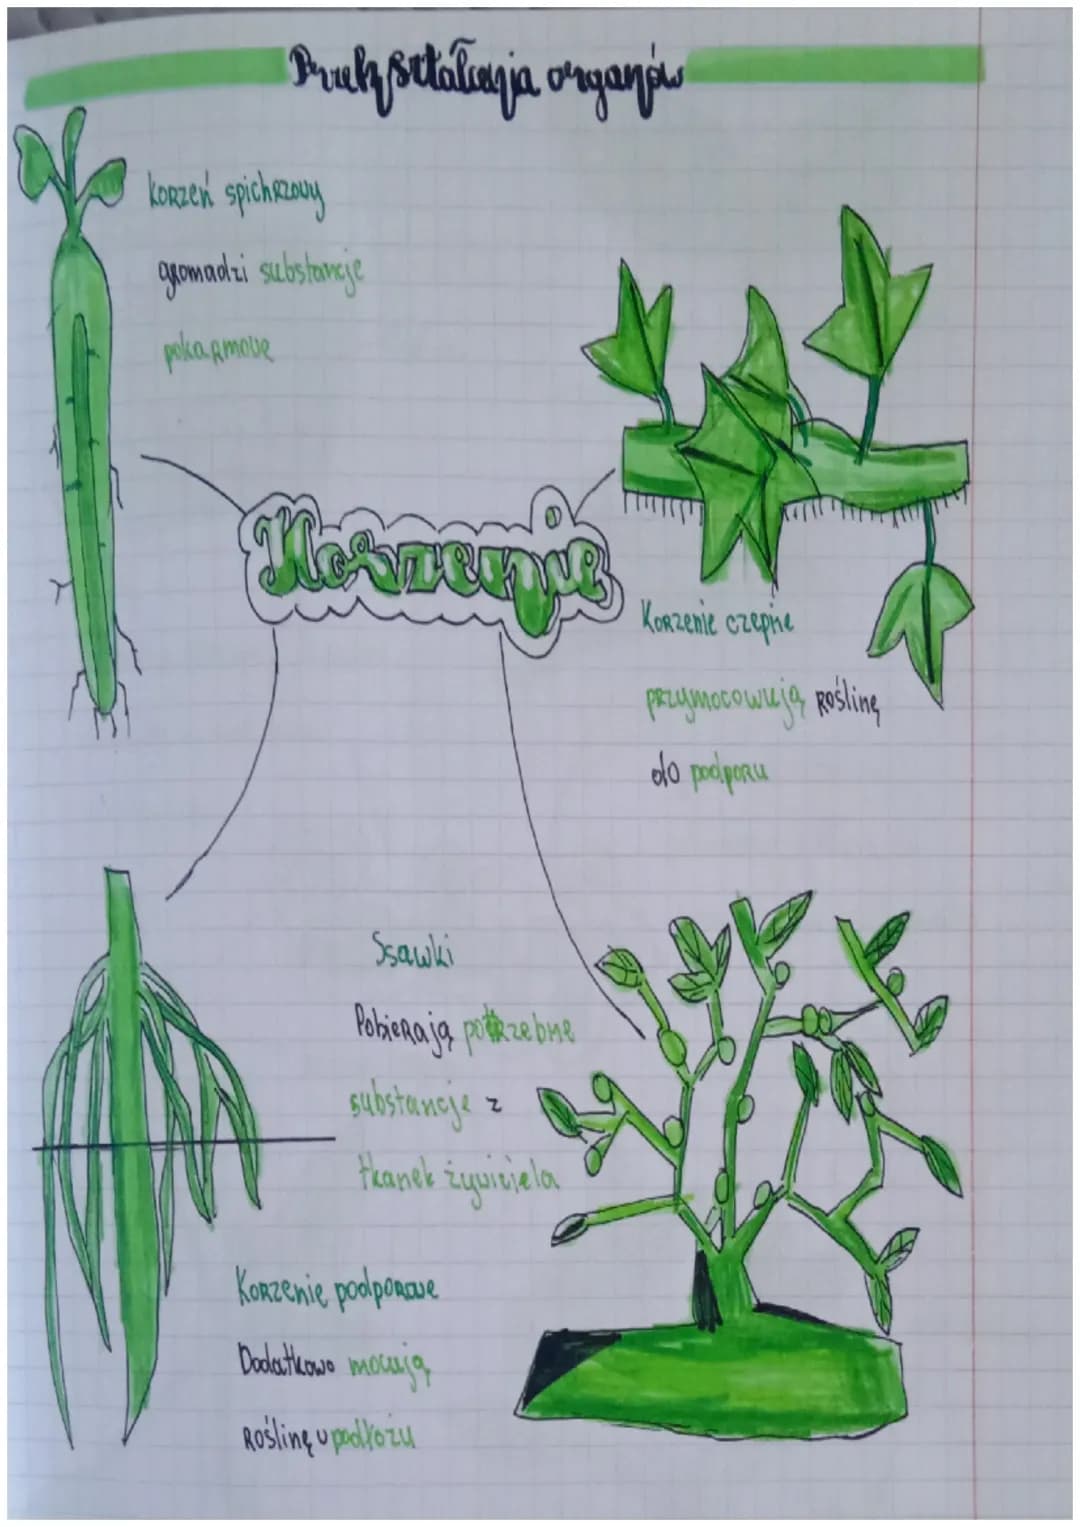 Przekształcenia organów
Korzeń spichrzowy
gromadzi substancje
pokarmowe
Korzenie
Korzenie czepne
przymocowują roślinę
do podporu
Ssawki
Pobierają potrzebne
substancje z
tkanek żywiciela
Korzenie podporowe
Dodatkowo mocują
roślinę w podłożu